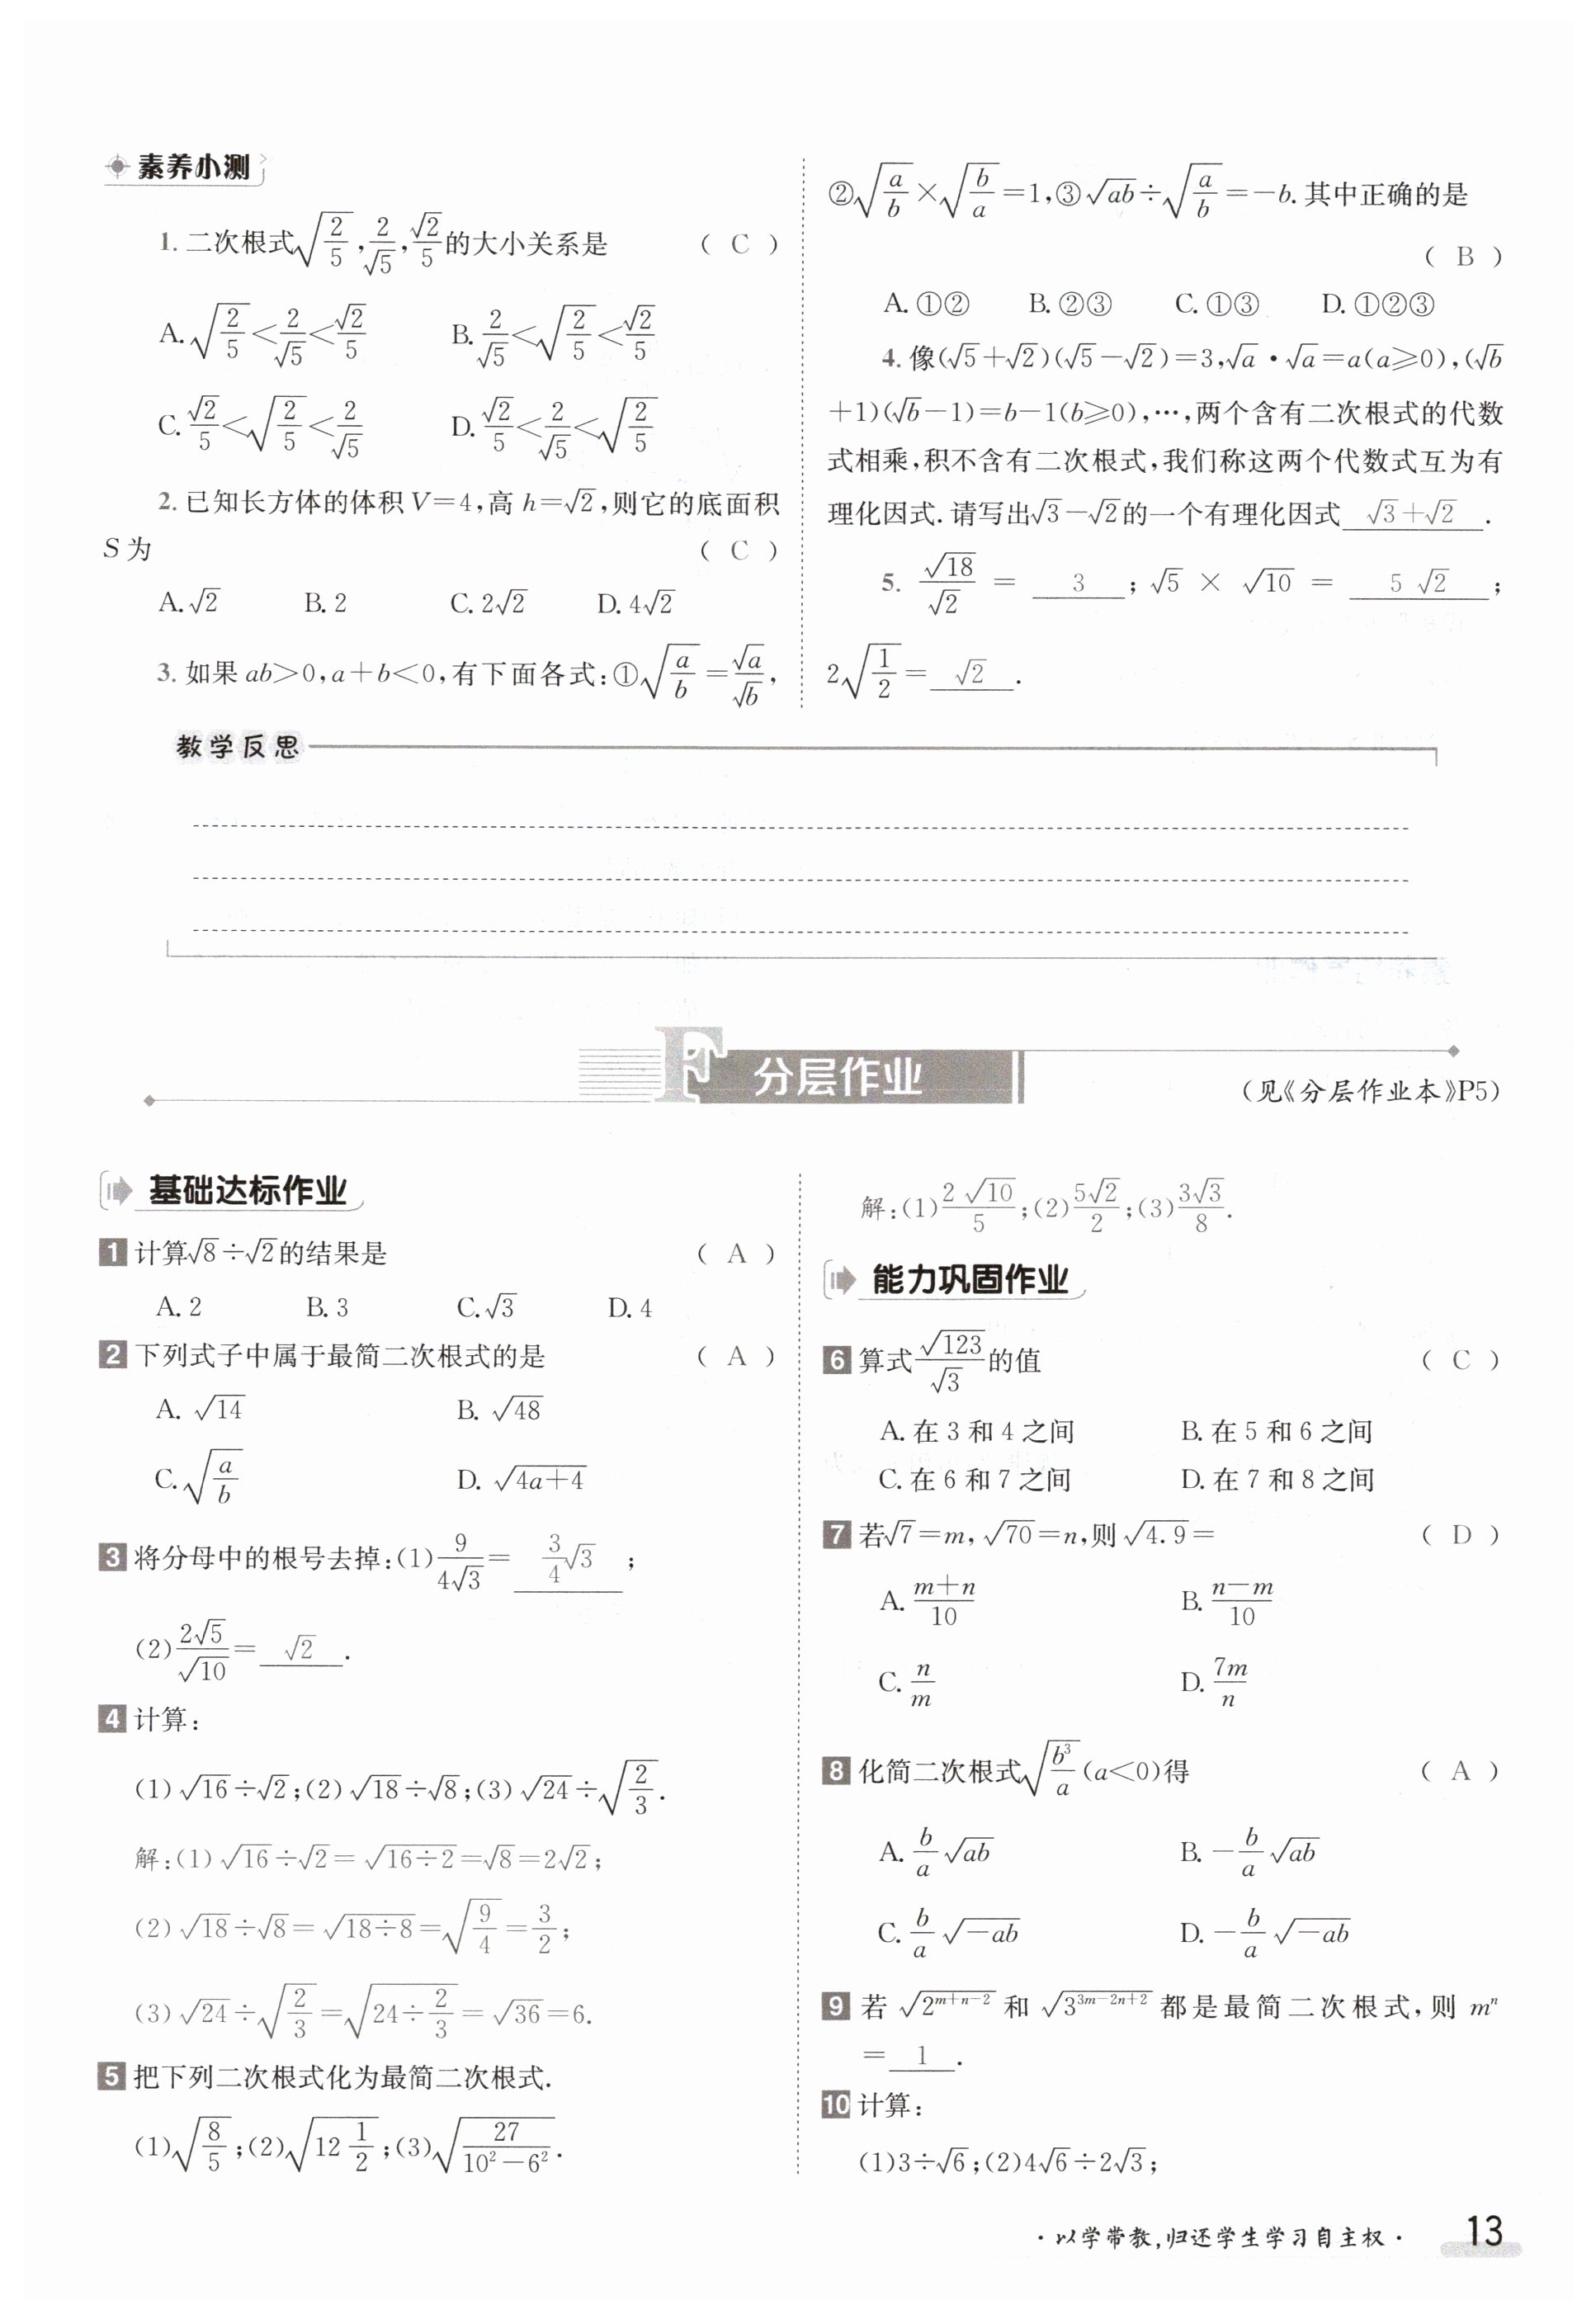 素养小测
1. 二次根式√(2/5), 2/√5, √2/5的大小关系是 ( C )
A. √(2/5)<2/√5<√2/5 B. 2/√5<√(2/5)<√2/5
C. √2/5<√(2/5)<2/√5 D. √2/5<2/√5<√(2/5)
2. 已知长方体的体积V=4,高h=√2,则它的底面积
S为 ( C )
A. √2 B. 2 C. 2√2 D. 4√2
3. 如果ab>0,a+b<0,有下面各式:①√(a/b)=√a/√b,
②√(a/b)×√(b/a)=1,③√(ab)÷√(a/b)=-b. 其中正确的是
( B )
A. ①② B. ②③ C. ①③ D. ①②③
4. 像(√5+√2)(√5-√2)=3,√a·√a=a(a≥0),(√b
+1)(√b-1)=b-1(b≥0),…,两个含有二次根式的代数
式相乘,积不含有二次根式,我们称这两个代数式互为有
理化因式. 请写出√3-√2的一个有理化因式 √3+√2 .
5. √18/√2 = 3 ; √5 × √10 = 5√2 ;
2√(1/2)= √2 .
教学反思
F 分层作业
(见《分层作业本》P5)
基础达标作业
1 计算√8÷√2的结果是 ( A )
A. 2 B. 3 C. √3 D. 4
2 下列式子中属于最简二次根式的是 ( A )
A. √14 B. √48
C. √(a/b) D. √(4a+4)
3 将分母中的根号去掉:(1)9/(4√3)= 3/4√3 ;
(2)2√5/√10= √2 .
4 计算:
(1)√16÷√2;(2)√18÷√8;(3)√24÷√(2/3).
解:(1)√16÷√2=√(16÷2)=√8=2√2;
(2)√18÷√8=√(18÷8)=√(9/4)=3/2;
(3)√24÷√(2/3)=√(24÷2/3)=√36=6.
5 把下列二次根式化为最简二次根式.
(1)√(8/5);(2)√(12 1/2);(3)√(27/(10²-6²)).
解:(1)2√10/5;(2)5√2/2;(3)3√3/8.
能力巩固作业
6 算式√123/√3的值 ( C )
A. 在3和4之间 B. 在5和6之间
C. 在6和7之间 D. 在7和8之间
7 若√7=m, √70=n,则√4.9= ( D )
A. (m+n)/10 B. (n-m)/10
C. n/m D. 7m/n
8 化简二次根式√(b³/a)(a<0)得 ( A )
A. b/a√(ab) B. -b/a√(ab)
C. b/a√(-ab) D. -b/a√(-ab)
9 若√(2^(m+n-2))和√(3^(3m-2n+2))都是最简二次根式,则mⁿ
= 1 .
10 计算:
(1)3÷√6;(2)4√6÷2√3;
·以学带教,归还学生学习自主权· 13